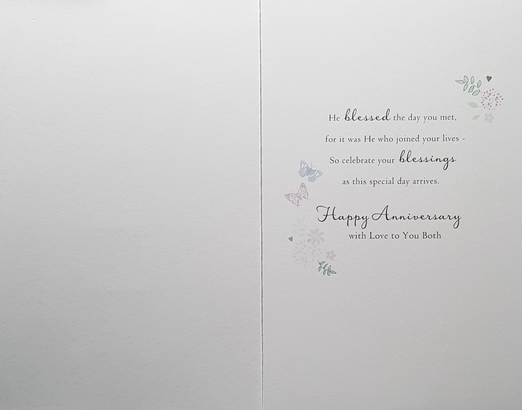 He blessed the day you met,
for it was He who joined your lives -
So celebrate your blessings
as this special day arrives.
Happy Anniversary
with Love to You Both